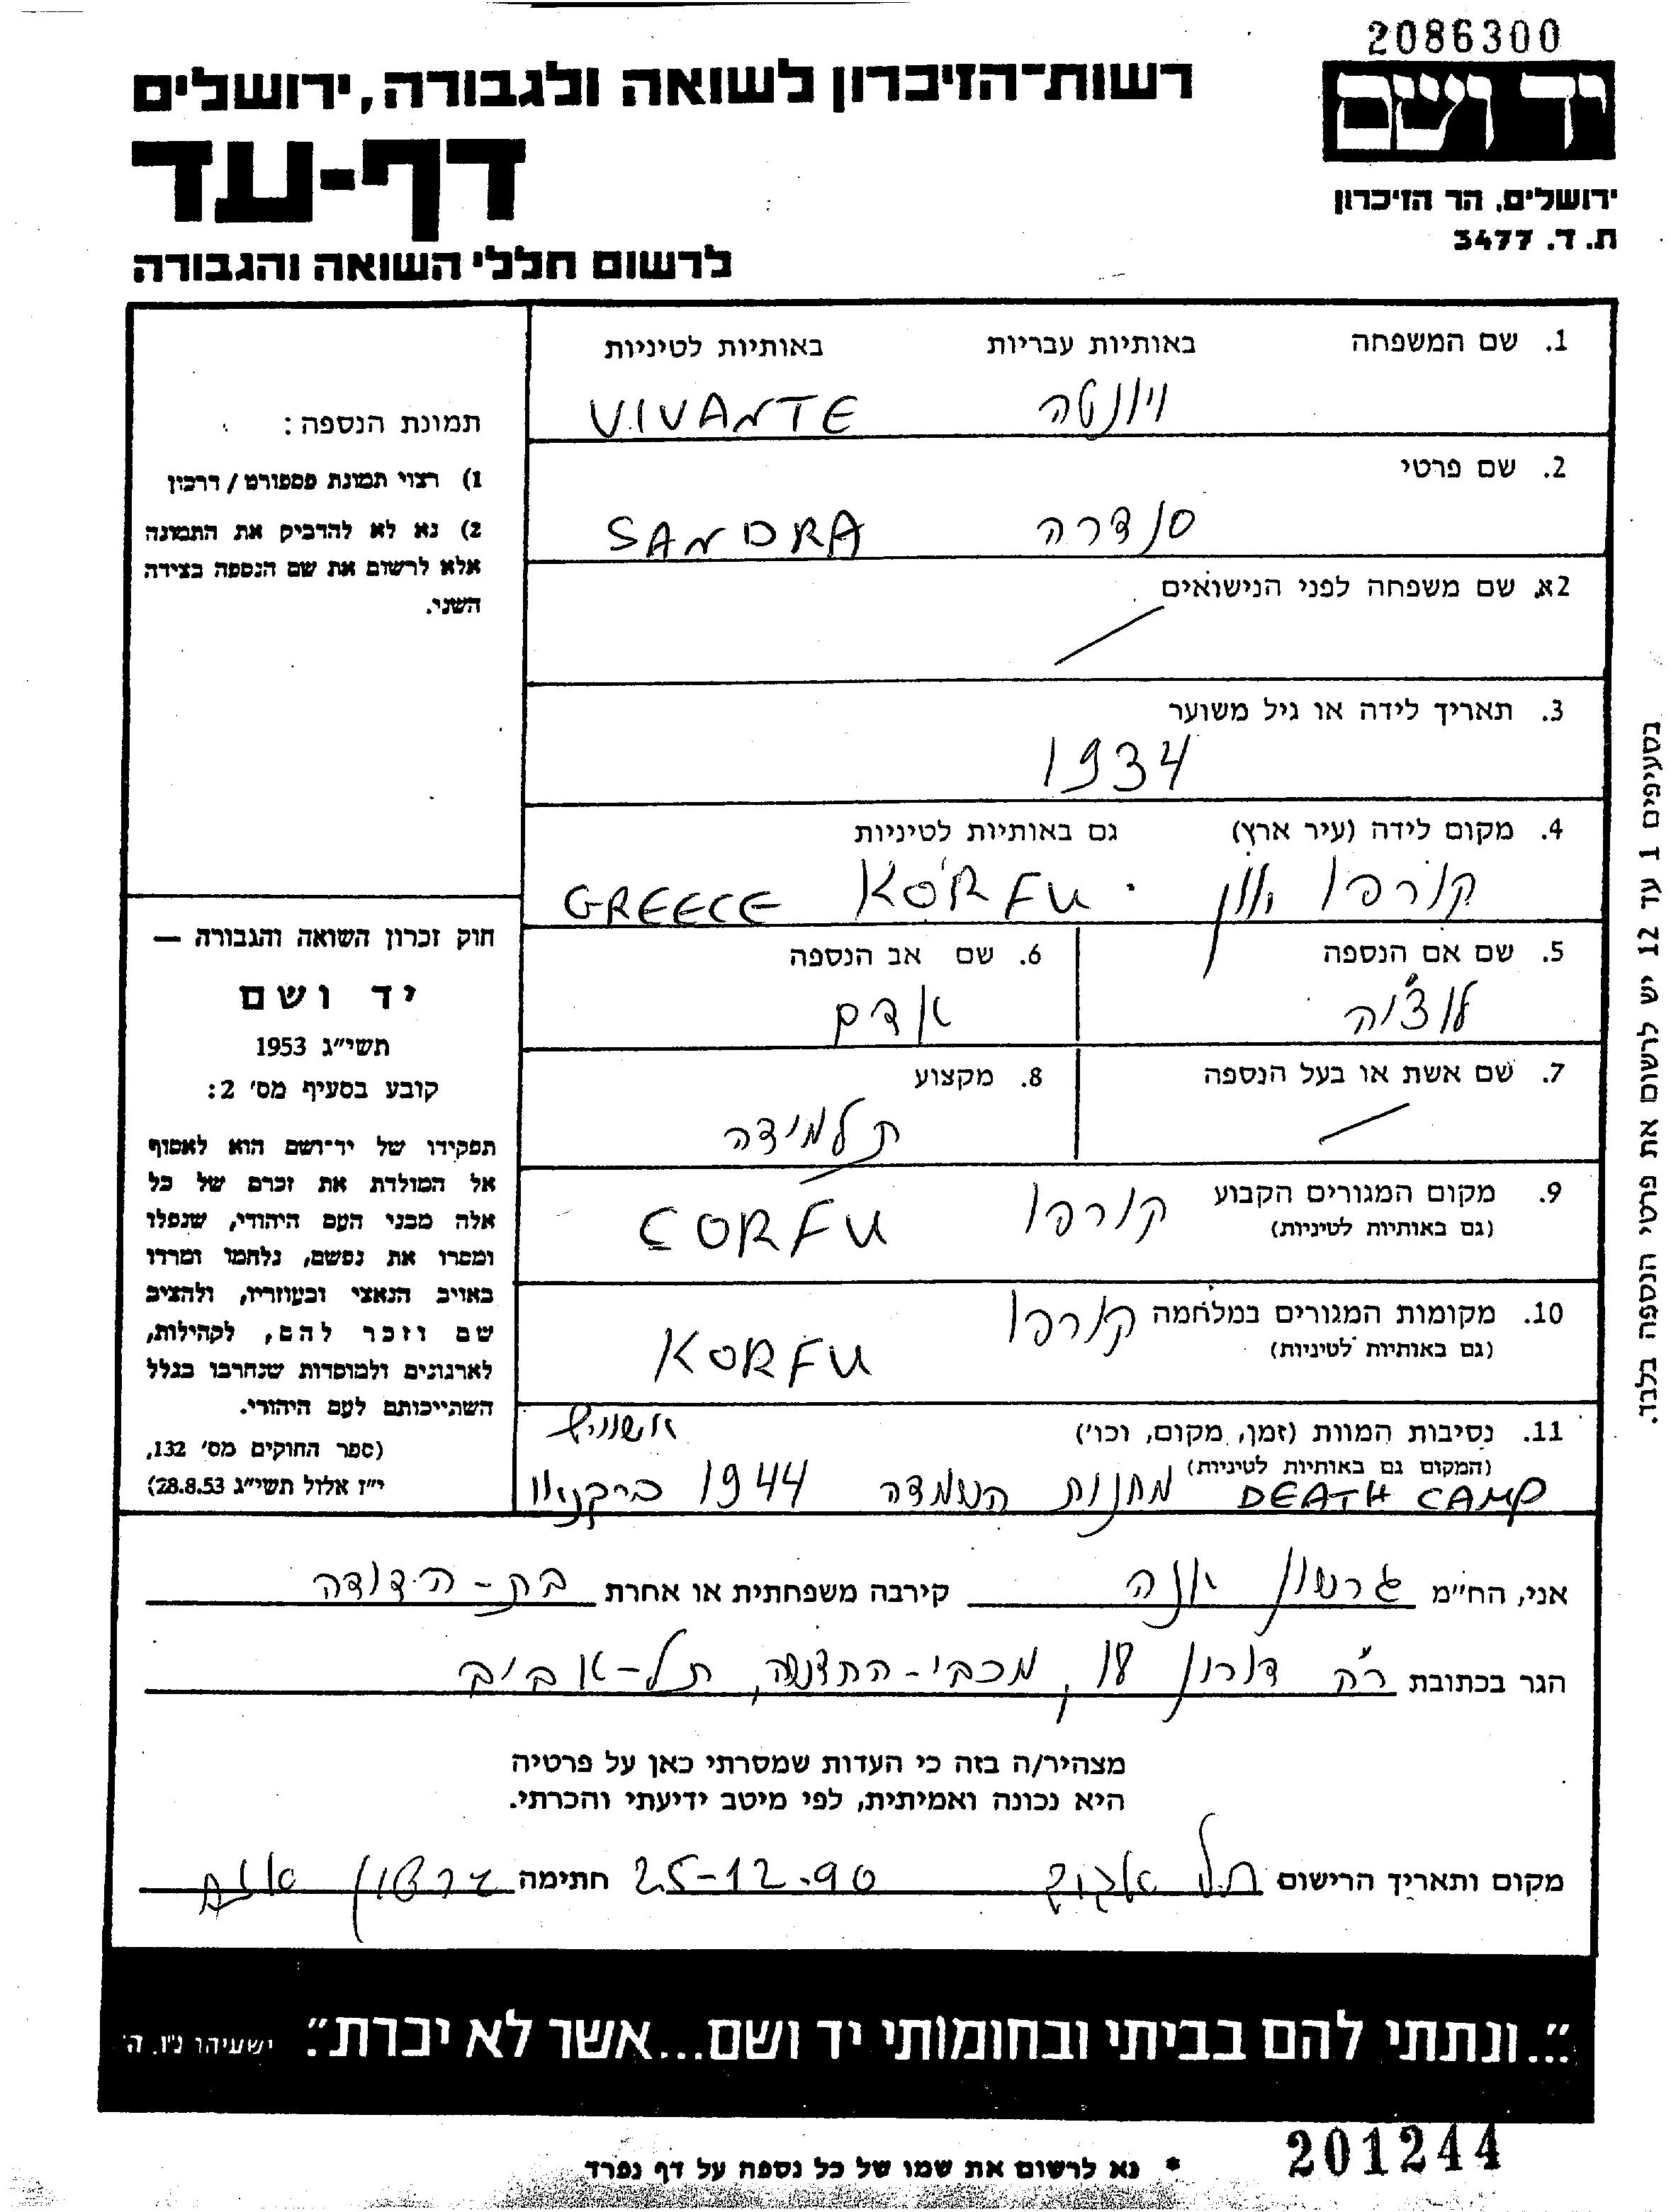 2086300
יד ושם
ירושלים, הר הזיכרון
ת. ד. 3477
רשות-הזיכרון לשואה ולגבורה, ירושלים
דף-עד
לרשום חללי השואה והגבורה
1. שם המשפחה באותיות עבריות באותיות לטיניות
ויונטה VIVANTE
2. שם פרטי
סנדרה SANDRA
2א. שם משפחה לפני הנישואים
3. תאריך לידה או גיל משוער
1934
4. מקום לידה (עיר ארץ) גם באותיות לטיניות
קורפו יוון KORFU GREECE
5. שם אם הנספה 6. שם אב הנספה
לוצ'יה אדם
7. שם אשת או בעל הנספה 8. מקצוע
תלמידה
9. מקום המגורים הקבוע קורפו CORFU
(גם באותיות לטיניות)
10. מקומות המגורים במלחמה קורפו
(גם באותיות לטיניות) KORFU
11. נסיבות המוות (זמן, מקום, וכו') אושוויץ
(המקום גם באותיות לטיניות)
DEATH CAMP מחנות השמדה 1944 ברקנאו
תמונת הנספה:
1) רצוי תמונת פספורט / דרכון
2) נא לא להדביק את התמונה
אלא לרשום את שם הנספה בצידה
השני.
חוק זכרון השואה והגבורה —
יד ושם
תשי"ג 1953
קובע בסעיף מס' 2:
תפקידו של יד-ושם הוא לאסוף
אל המולדת את זכרם של כל
אלה מבני העם היהודי, שנפלו
ומסרו את נפשם, נלחמו ומרדו
באויב הנאצי ובעוזריו, ולהציב
שם וזכר להם, לקהילות,
לארגונים ולמוסדות שנחרבו בגלל
השתייכותם לעם היהודי.
(ספר החוקים מס' 132,
י"ז אלול תשי"ג 28.8.53)
בסעיפים 1 עד 12 יש לרשום את פרטי הנספה בלבד.
אני, הח"מ גרשון אנה קירבה משפחתית או אחרת בת-הדודה
הגר בכתובת רח' דורון 18, מכבי-החדשה, תל-אביב
מצהיר/ה בזה כי העדות שמסרתי כאן על פרטיה
היא נכונה ואמיתית, לפי מיטב ידיעתי והכרתי.
מקום ותאריך הרישום תל אביב 25-12-90 חתימה גרשון אנה
"...ונתתי להם בביתי ובחומותי יד ושם...אשר לא יכרת." ישעיהו נ"ו, ה'
201244
* נא לרשום את שמו של כל נספה על דף נפרד